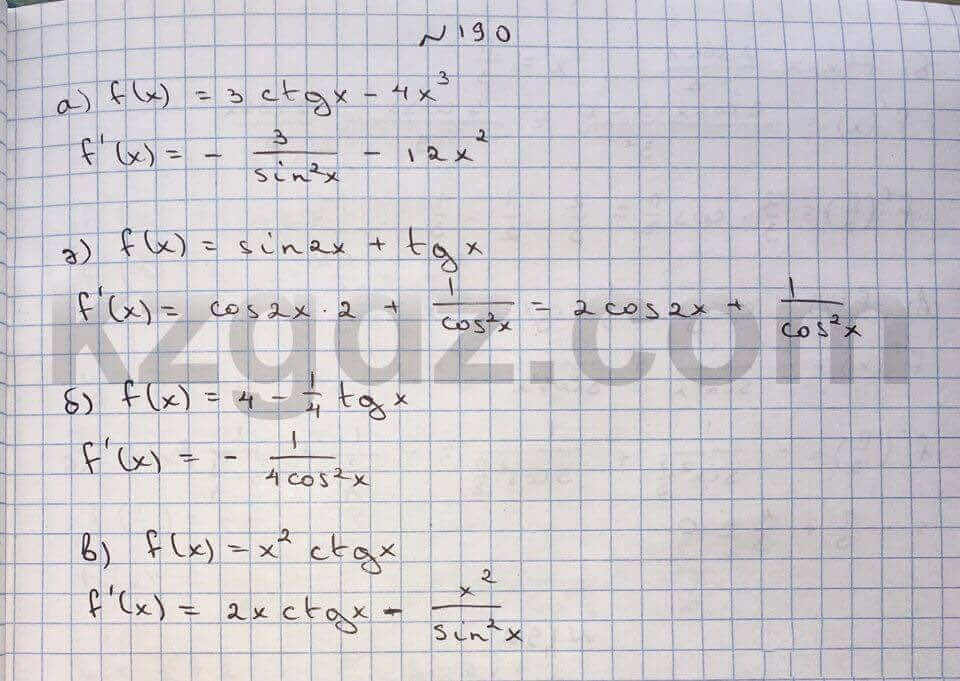 №190
а) f(x) = 3 ctgx - 4x³
f'(x) = - 3/sin²x - 12x²
г) f(x) = sin2x + tgx
f'(x) = cos2x · 2 + 1/cos²x = 2cos2x + 1/cos²x
kzgdz.com
б) f(x) = 4 - 1/4 tgx
f'(x) = - 1/4cos²x
в) f(x) = x² ctgx
f'(x) = 2x ctgx - x²/sin²x